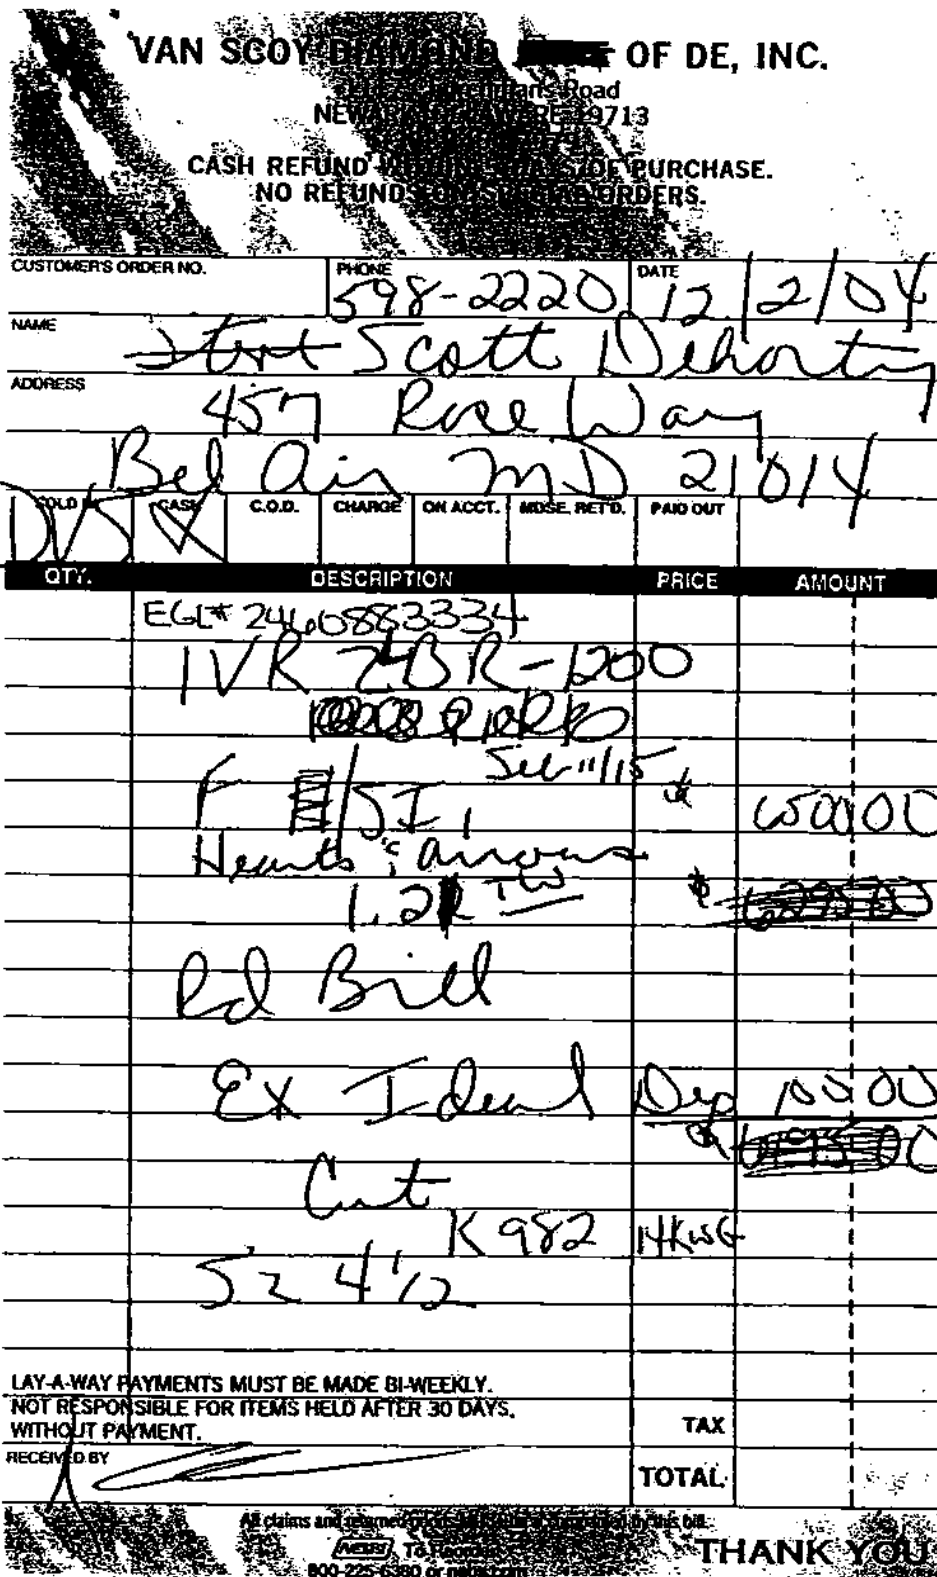 VAN SCOY DIAMOND OF DE, INC.
Road
NEWARK, DELAWARE 19713
CASH REFUND WITHIN DAYS OF PURCHASE.
NO REFUND ON SPECIAL ORDERS.
CUSTOMER'S ORDER NO. PHONE 598-2220 DATE 12/2/04
NAME Scott Dehorty
ADDRESS 457 Rose Way
Bel Air MD 21014
SOLD BY CASH C.O.D. CHARGE ON ACCT. MDSE. RET'D. PAID OUT
QTY. DESCRIPTION PRICE AMOUNT
EGL# 2460883334
1 VR 74BR-1200
F /SI1 $ 6500 00
Hearts & arrows
1.21 TW $
Rd Brill
Ex Ideal Dep 100 00
Cut
K 982 14KWG
Sz 4 1/2
LAY-A-WAY PAYMENTS MUST BE MADE BI-WEEKLY.
NOT RESPONSIBLE FOR ITEMS HELD AFTER 30 DAYS,
WITHOUT PAYMENT. TAX
RECEIVED BY TOTAL
All claims and returned goods by this bill.
NEBS To Reorder
800-225-6380 or nebs.com THANK YOU